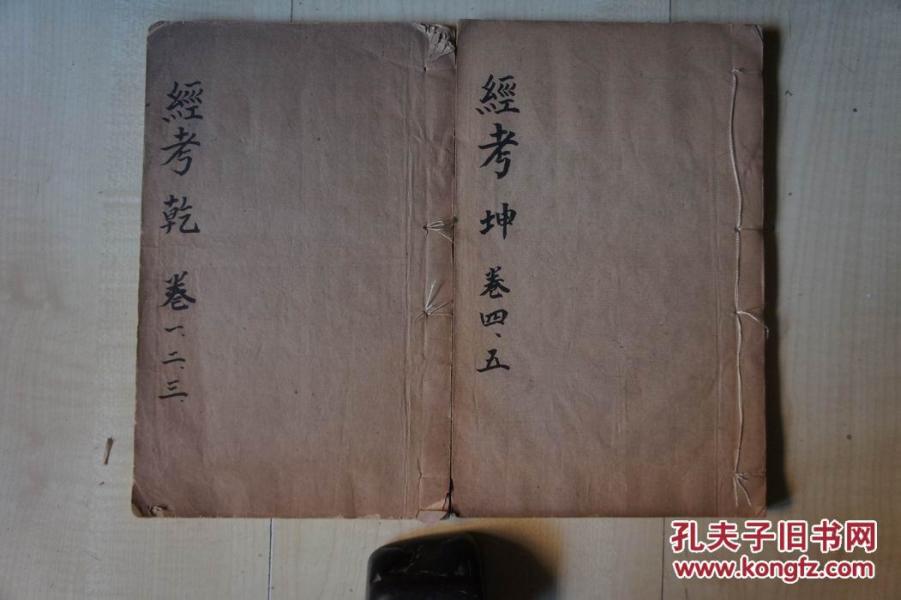 經考 乾 卷一、二、三、
經考 坤 卷四、五
孔夫子旧书网
www.kongfz.com